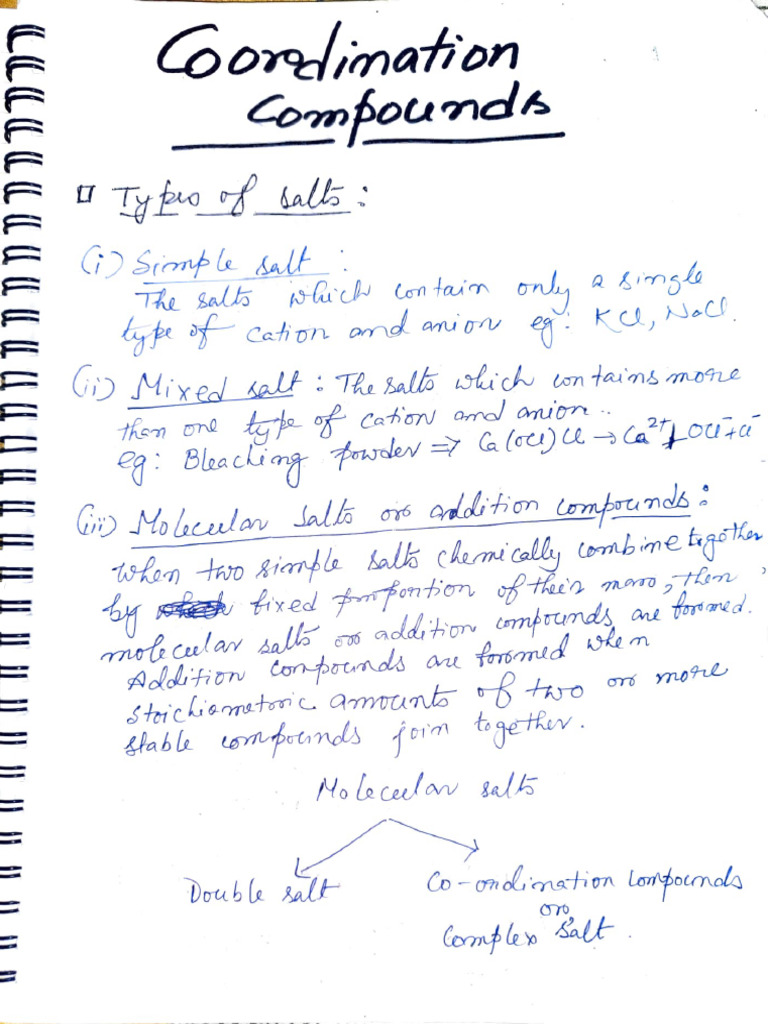 Coordination
Compounds
Types of salts:
(i) Simple salt:
The salts which contain only a single
type of cation and anion eg: KCl, NaCl.
(ii) Mixed salt: The salts which contains more
than one type of cation and anion..
eg: Bleaching powder ⇒ Ca(OCl)Cl → Ca²⁺ + OCl⁻ + Cl⁻
(iii) Molecular salts or addition compounds:
When two simple salts chemically combine together
by fixed proportion of their mass, then
molecular salts or addition compounds are formed.
Addition compounds are formed when
stoichiometric amounts of two or more
stable compounds join together.
Molecular salts
Double salt
Co-ordination compounds
or,
Complex salt.